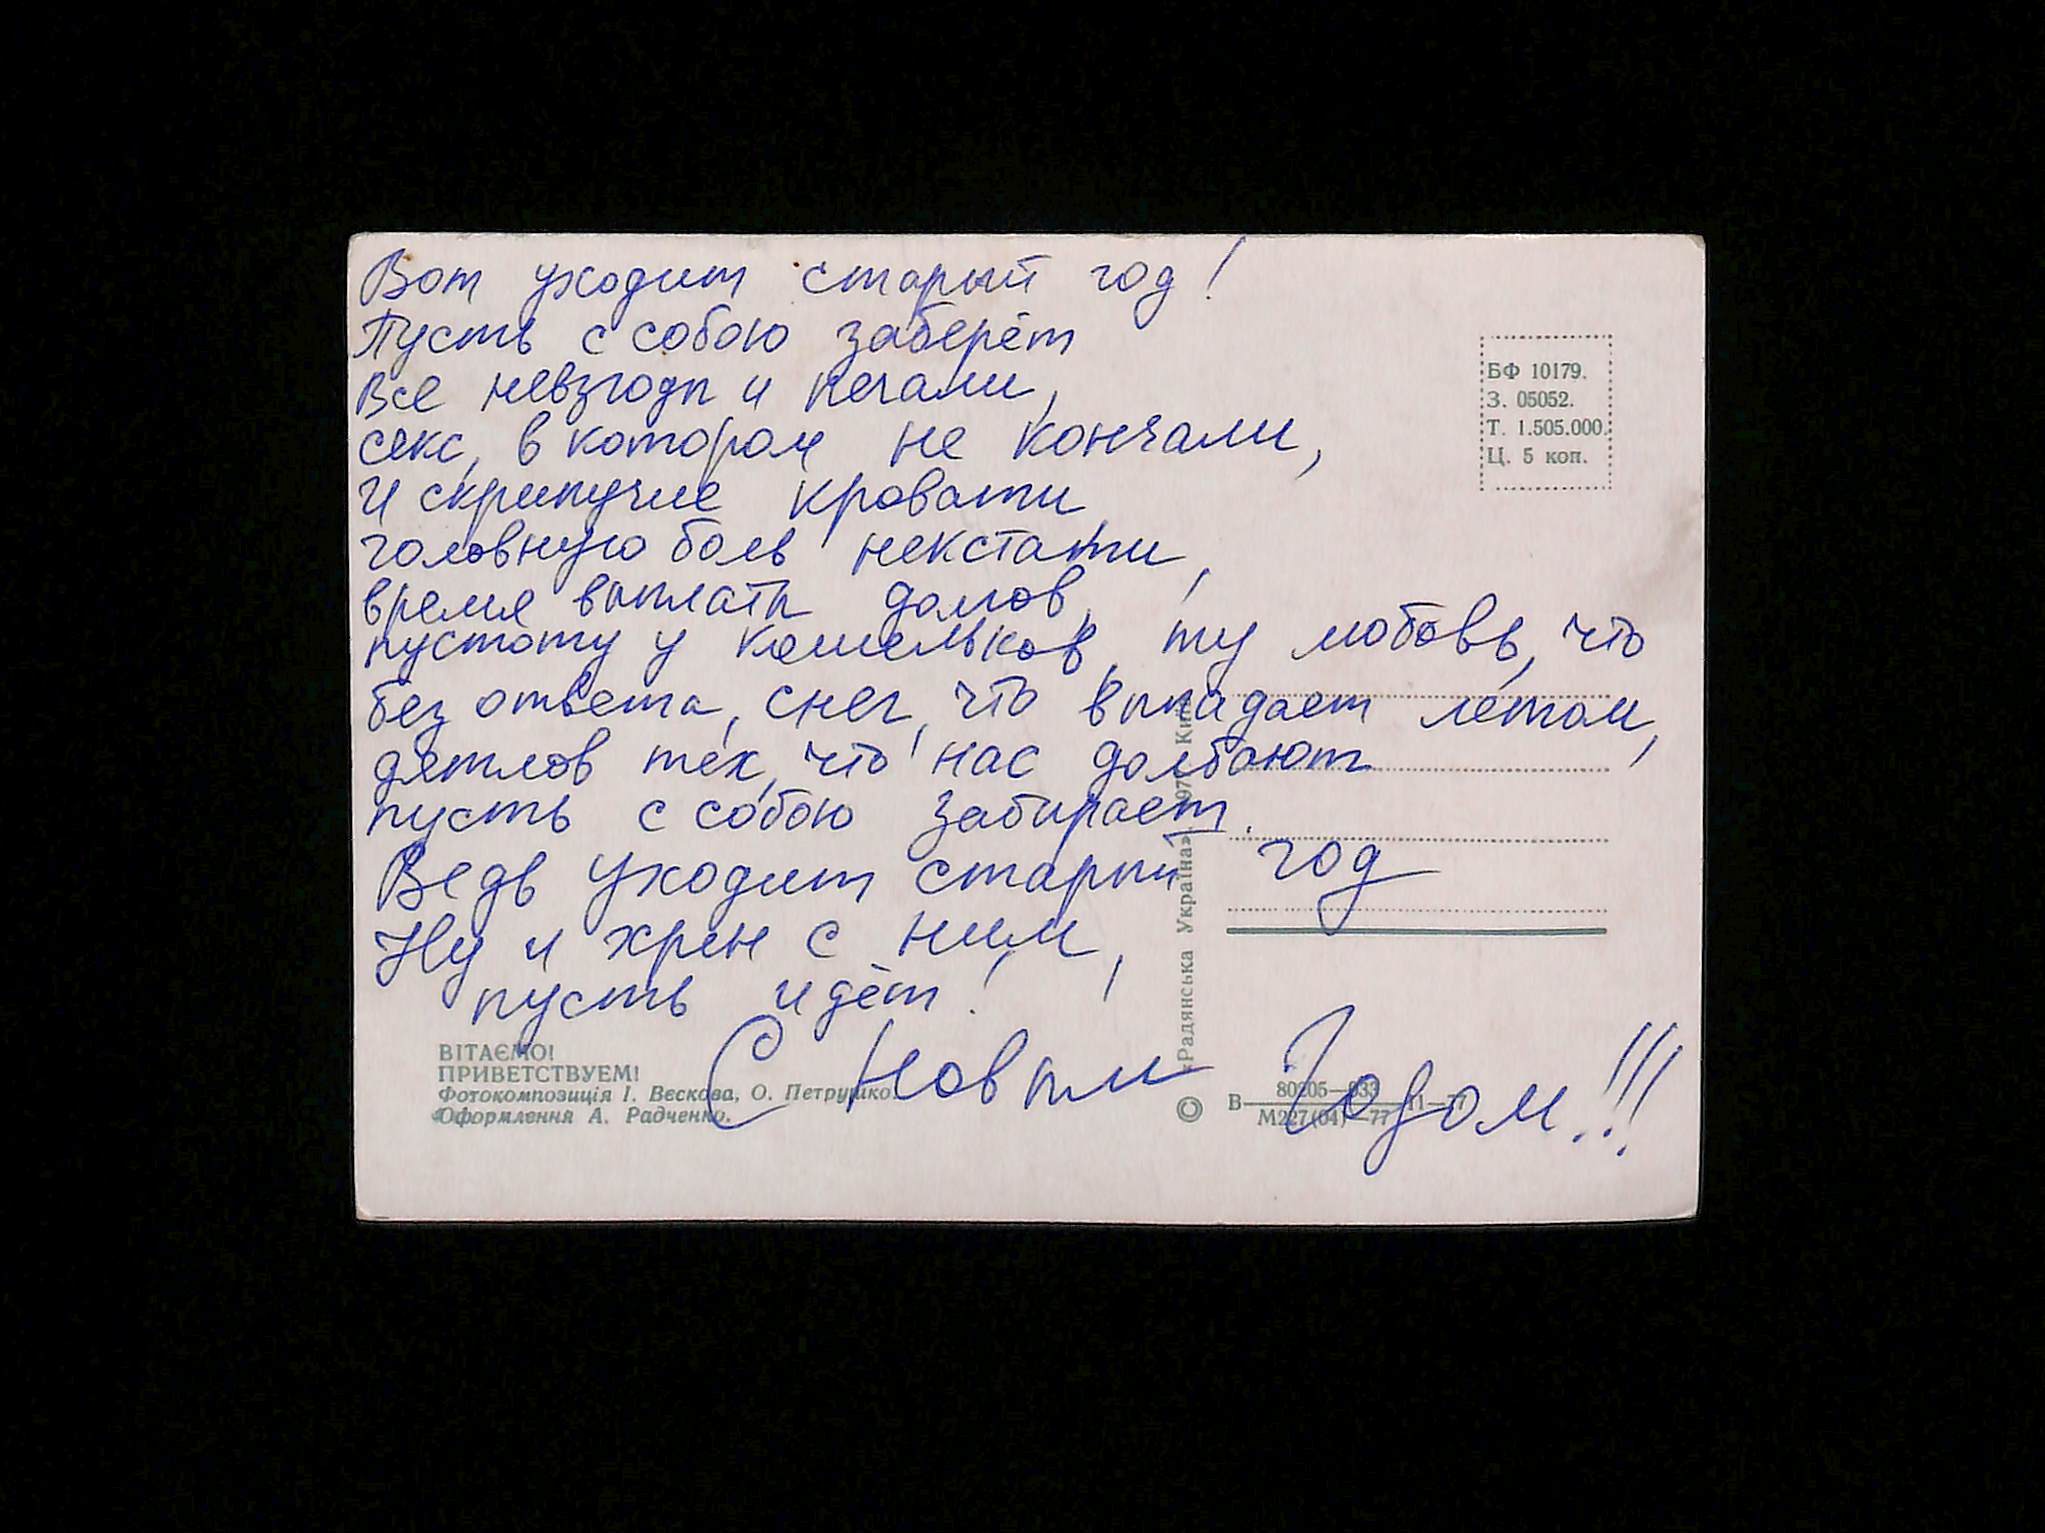 Вот уходит старый год!
Пусть с собою заберёт
все невзгоды и печали,
секс, в котором не кончали,
и скрипучие кровати,
головную боль некстати,
время выплаты долгов,
пустоту у кошельков, ту любовь, что
без ответа, снег, что выпадает летом,
дятлов тех, что нас долбают
пусть с собою забирает.
Ведь уходит старый год
Ну и хрен с ним,
пусть идёт!
С Новым Годом!!!
БФ 10179.
З. 05052.
Т. 1.505.000.
Ц. 5 коп.
«Радянська Україна»
ВІТАЄМО!
ПРИВЕТСТВУЕМ!
Фотокомпозиція І. Вєскова, О. Петрушко.
Оформлення А. Радченко.
©
В